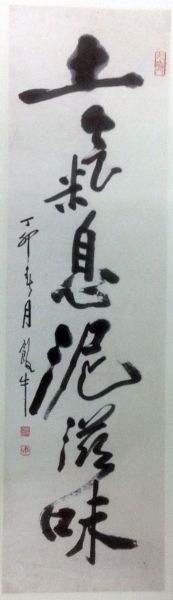 土氣息泥滋味
丁卯春月飯牛